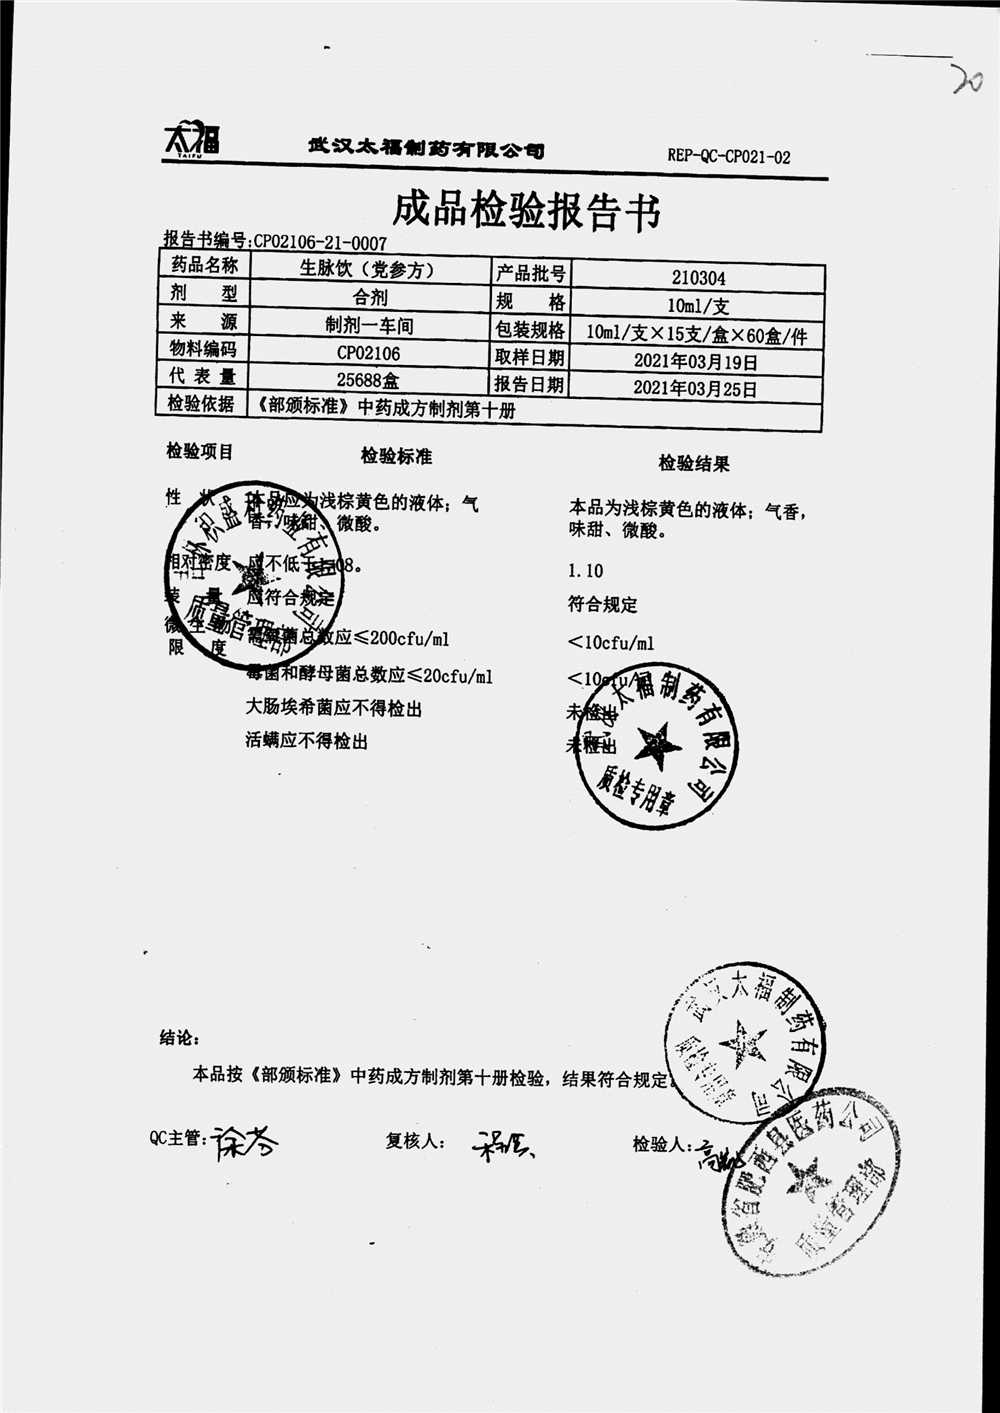 20
太福
TAIFU
武汉太福制药有限公司
REP-QC-CP021-02
成品检验报告书
报告书编号:CP02106-21-0007
药品名称 生脉饮（党参方） 产品批号 210304
剂 型 合剂 规 格 10ml/支
来 源 制剂一车间 包装规格 10ml/支×15支/盒×60盒/件
物料编码 CP02106 取样日期 2021年03月19日
代 表 量 25688盒 报告日期 2021年03月25日
检验依据 《部颁标准》中药成方制剂第十册
检验项目 检验标准 检验结果
性 状 本品应为浅棕黄色的液体；气 本品为浅棕黄色的液体；气香，
香，味甜、微酸。 味甜、微酸。
相对密度 应不低于1.08。 1.10
装 量 应符合规定 符合规定
微生物 需氧菌总数应≤200cfu/ml <10cfu/ml
限 度
霉菌和酵母菌总数应≤20cfu/ml <10cfu/ml
大肠埃希菌应不得检出 未检出
活螨应不得检出 未检出
药业有限公司
质量管理部
太福制药有限公司
质检专用章
结论：
本品按《部颁标准》中药成方制剂第十册检验，结果符合规定。
武汉太福制药有限公司
质检专用章
QC主管: 徐芬 复核人： 检验人:
安徽省肥西县医药公司
质量管理部